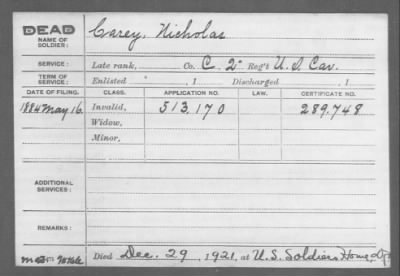 DEAD
NAME OF SOLDIER: Carey, Nicholas
SERVICE: Late rank, Co. C. 2" Reg't U.S. Cav.
TERM OF SERVICE: Enlisted , 1 Discharged , 1
DATE OF FILING. CLASS. APPLICATION NO. LAW. CERTIFICATE NO.
1884 May 16. Invalid, 513.170 289.748
Widow,
Minor,
ADDITIONAL SERVICES:
REMARKS:
Died Dec. 29, 1921, at U.S. Soldiers Home,